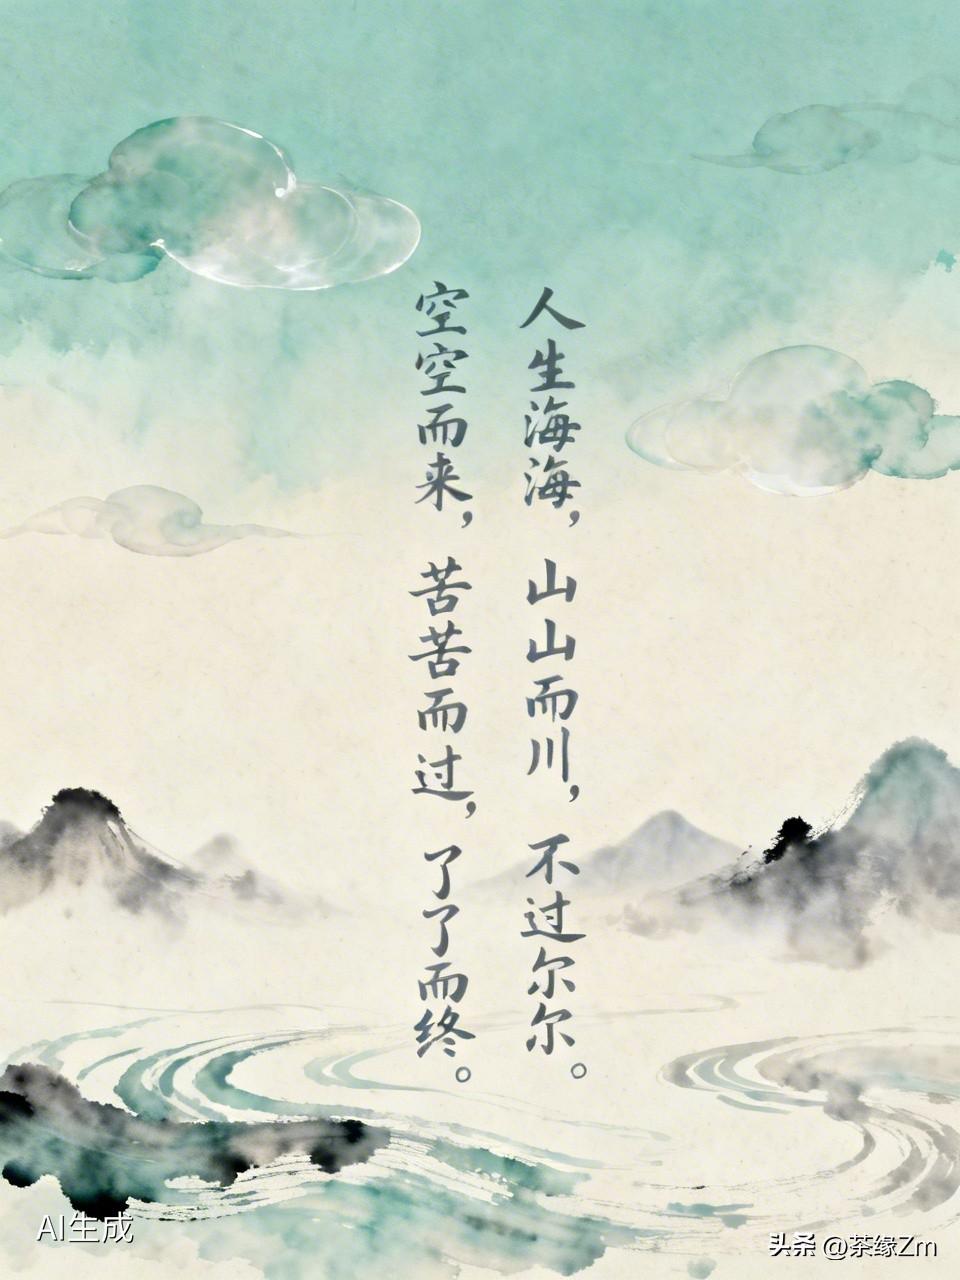 人生海海，山山而川，不过尔尔。
空空而来，苦苦而过，了了而终。
AI生成
头条 @茶缘Zm